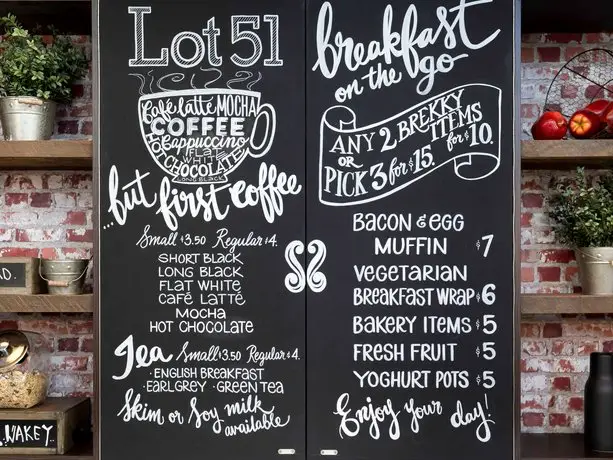 Lot 51
Café latté MOCHA
COFFEE
Cappuccino
FLAT
WHITE
HOT CHOCOLATE
LONG BLACK
...but first coffee
Small $3.50 Regular $4.
SHORT BLACK
LONG BLACK
FLAT WHITE
CAFÉ LATTÉ
MOCHA
HOT CHOCOLATE
Tea Small $3.50 Regular $4.
·ENGLISH BREAKFAST
·EARL GREY ·GREEN TEA
Skim or Soy milk
available
breakfast
on the go
ANY 2 BREKKY
ITEMS
for $10.
OR
PICK 3 for $15.
BACON & EGG
MUFFIN $7
VEGETARIAN
BREAKFAST WRAP $6
BAKERY ITEMS $5
FRESH FRUIT $5
YOGHURT POTS $5
Enjoy your day!
WAKEY